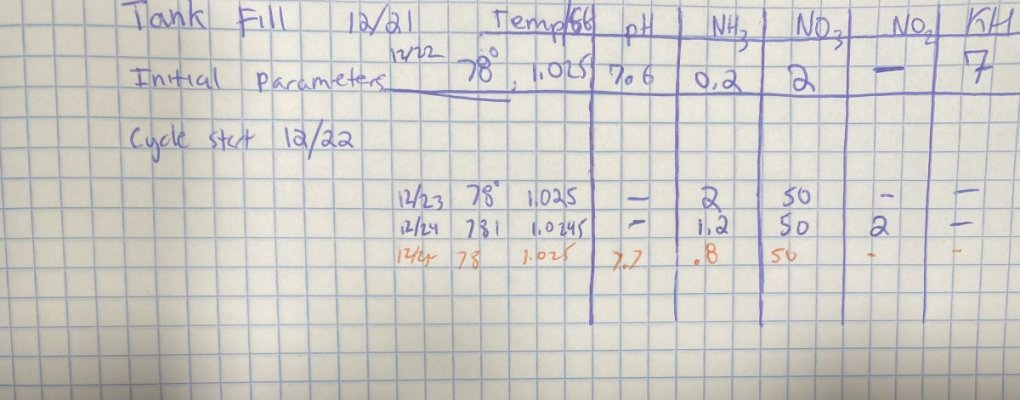 Tank Fill 12/21 Temp/SG pH NH3 NO3 NO2 KH
Initial Parameters 12/22 78° 1.025 7.6 0.2 2 — 7
Cycle start 12/22
12/23 78° 1.025 — 2 50 - —
12/24 78.1 1.0245 - 1.2 50 2 —
12/25 78 1.025 7.7 .8 50 - -